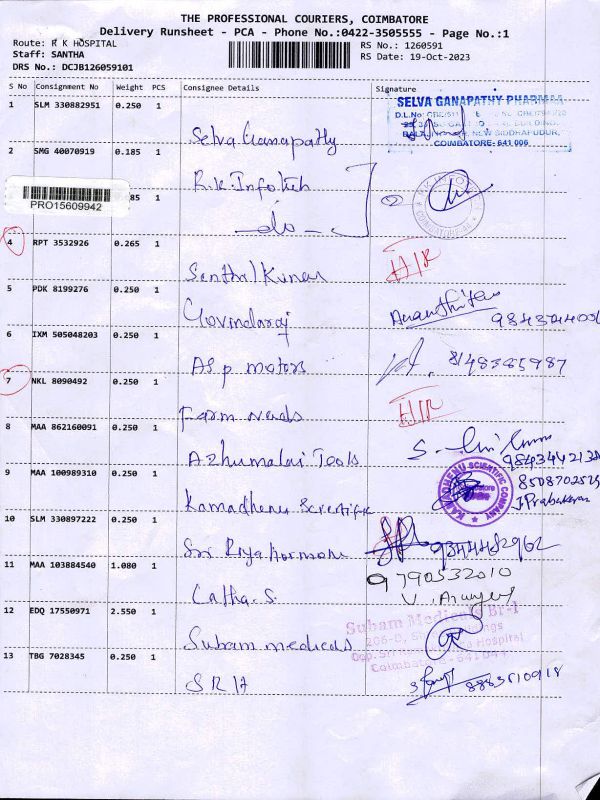 THE PROFESSIONAL COURIERS, COIMBATORE
Delivery Runsheet - PCA - Phone No.:0422-3505555 - Page No.:1
Route: R K HOSPITAL
Staff: SANTHA
DRS No.: DCJB126059101
RS No.: 1260591
RS Date: 19-Oct-2023
S No Consignment No Weight PCS Consignee Details Signature
1 SLM 330882951 0.250 1
SELVA GANAPATHY PHARMA
COIMBATORE- 641 006
Selva Ganapathy
2 SMG 40070919 0.185 1
R.K. Infotech
PRO15609942
85 1
-do-
4 RPT 3532926 0.265 1
H/R
Senthil Kumar
5 PDK 8199276 0.250 1
Govindaraj
6 IXM 505048203 0.250 1
8148385987
ASP motors
7 NKL 8090492 0.250 1
H/R
Farm needs
8 MAA 862160091 0.250 1
Azhumalai Tools
9 MAA 100989310 0.250 1
KAMADHENU SCIENTIFIC COMPANY
Kamadhenu Scientific
10 SLM 330897222 0.250 1
9344482962
Sri Priya hormone
11 MAA 103884540 1.080 1
9790532010
Latha. S.
12 EDQ 17550971 2.550 1
Subam Medicals Br-1
Coimbatore - 641044
Subam medicals
13 TBG 7028345 0.250 1
SRH
8883510918